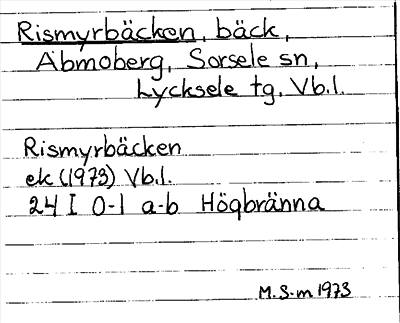 Rismyrbäcken, bäck,
Abmoberg, Sorsele sn,
Lycksele tg, Vb.l.
Rismyrbäcken
ek (1973) Vb.l.
24 I 0-1 a-b Högbränna
M.S-m 1973